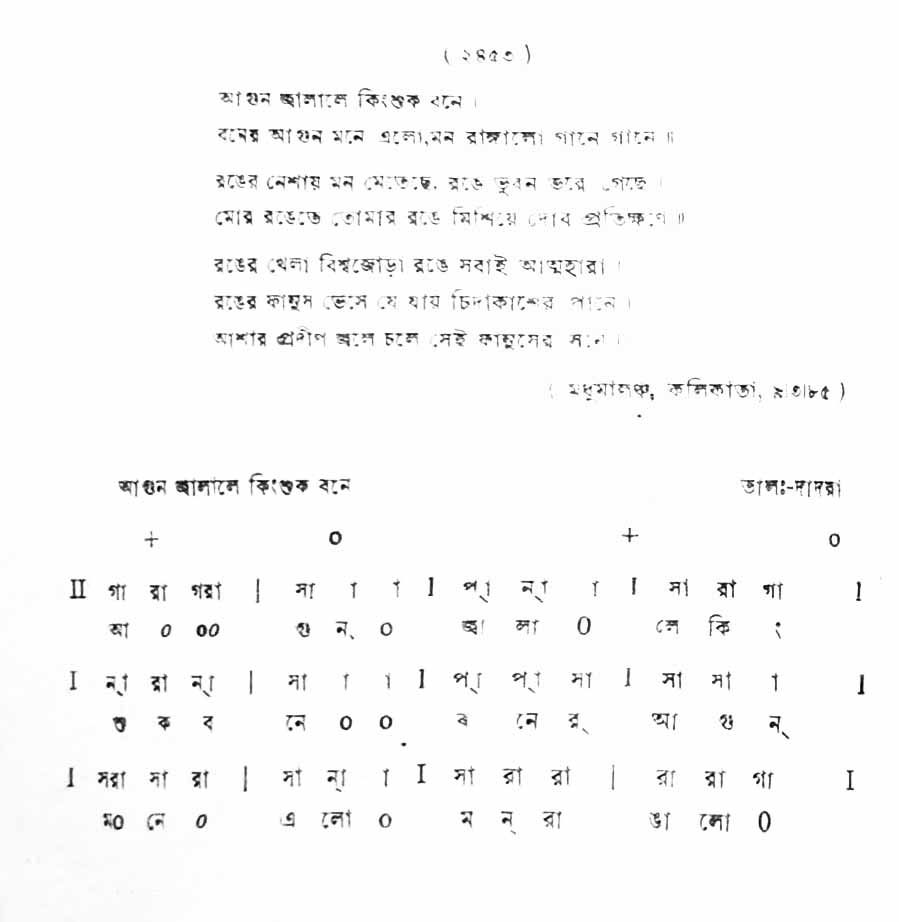 ( ২৪৫৩ )
আগুন জ্বালালে কিংশুক বনে ।
বনের আগুন মনে এলো,মন রাঙ্গালো গানে গানে ॥
রঙের নেশায় মন মেতেছে, রঙে ভুবন ভরে গেছে ।
মোর রঙেতে তোমার রঙে মিশিয়ে দোব প্রতিক্ষণে ॥
রঙের খেলা বিশ্বজোড়া রঙে সবাই আত্মহারা ।
রঙের ফানুস ভেসে যে যায় চিদাকাশের পানে ।
আশার প্রদীপ জ্বলে চলে সেই ফানুসের সনে ।
( মধুমালঞ্চ, কলিকাতা, ৯।৩।৮৫ )
আগুন জ্বালালে কিংশুক বনে তালঃ-দাদরা
+ ০ + ০
II গা রা গরা | সা া া I প্‌া ন্‌া া I সা রা গা I
আ ০ ০০ গু ন্ ০ জ্বা লা ০ লে কি ং
I ন্‌া রা ন্‌া | সা া া I প্‌া প্‌া সা I সা সা া I
শু ক ব নে ০ ০ ব নে র্ আ গু ন্
I সরা সা রা | সা ন্‌া া I সা রা রা | রা রা গা I
ম০ নে ০ এ লো ০ ম ন্ রা ঙা লো ০